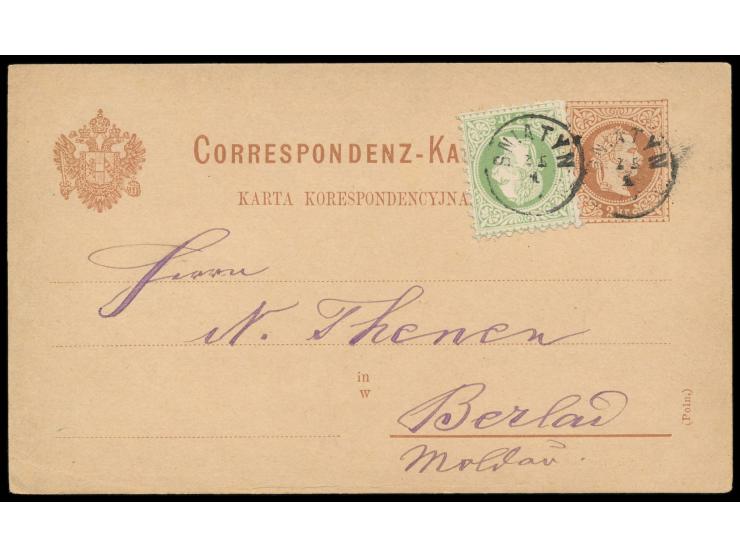 CORRESPONDENZ-KA
KARTA KORESPONDENCYJNA.
SNIATYN
SNIATYN
2 kr
Herrn
N. Thenen
in
w
Berlad
Moldau.
(Poln.)